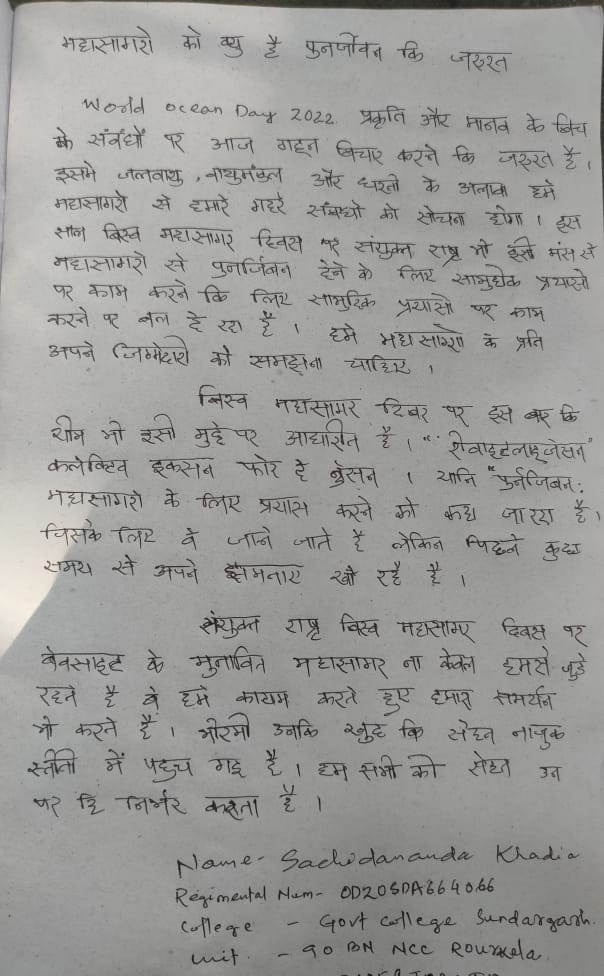 महासागरो को क्यु है पुनर्जीवन कि जरुरत
World ocean Day 2022. प्रकृति और मानव के बिच
के संबंधों पर आज गहन बिचार करने कि जरुरत है।
इसमे जलवायु, वायुमंडल और धरती के अलावा हमे
महासागरो से हमारे गहरे संबंधो को सोचना होगा। इस
साल बिस्व महासागर दिवस पर संयुक्त राष्ट्र भी इसी मंस से
महासागरो से पुनर्जिबन देने के लिए सामुहिक प्रयासो
पर काम करने कि लिए सामुहिक प्रयासो पर काम
करने पर बल दे रहा है। हमे महासागरो के प्रति
अपने जिम्मेदारी को समझना चाहिए।
बिस्व महासागर दिवस पर इस बार कि
थीम भी इसी मुद्दे पर आधारीत है। "रीवाइटलाइजेसन
कलेक्टिव इकसन फोर दे ओसन। यानि "पुर्नजिबन:
महासागरो के लिए प्रयास करने को कहा जा रहा है।
जिसके लिए वे जाने जाते है लेकिन पिछले कुछ
समय से अपने क्षमताए खो रहे है।
संयुक्त राष्ट्र बिस्व महासागर दिवस पर
बेवसाइट के मुताबित महासागर ना केवल हमसे जुड़े
रहते है वे हमे कायम करते हुए हमारा समर्थन
भी करते है। भीरभी उनकि खुद कि सेहत नाजुक
स्तीती में पहुच गइ है। हम सभी की सेहत उन
पर हि निर्भर करता है।
Name- Sachidananda Khadia
Regimental Num- OD20SDA664066
College - Govt College Sundargarh.
Unit. - 90 BN NCC Rourkela.